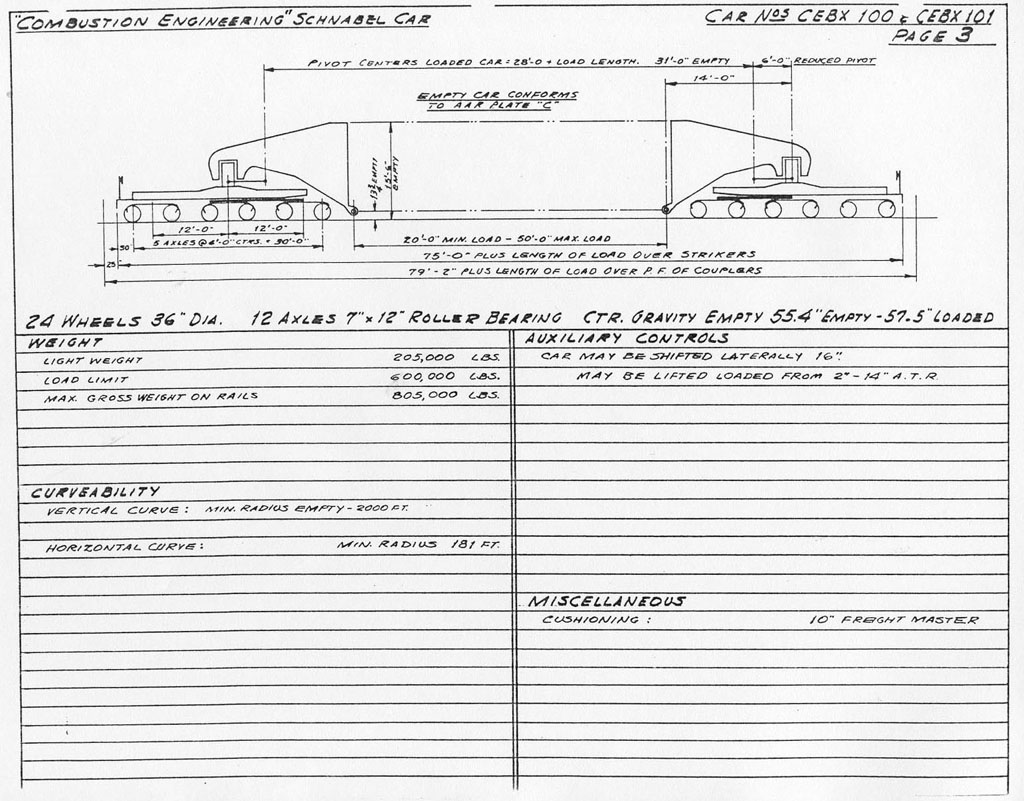 "COMBUSTION ENGINEERING" SCHNABEL CAR
CAR NOS CEBX 100 & CEBX 101
PAGE 3
PIVOT CENTERS LOADED CAR = 28'-0 + LOAD LENGTH. 31'-0" EMPTY
6'-0" REDUCED PIVOT
14'-0"
EMPTY CAR CONFORMS
TO AAR PLATE "C"
EMPTY
15'-6"
EMPTY
12'-0" 12'-0"
5 AXLES @ 6'-0" CTRS. = 30'-0"
20'-0" MIN. LOAD - 50'-0" MAX. LOAD
30"
75'-0" PLUS LENGTH OF LOAD OVER STRIKERS
25"
79'-2" PLUS LENGTH OF LOAD OVER P.F. OF COUPLERS
24 WHEELS 36" DIA. 12 AXLES 7" x 12" ROLLER BEARING CTR. GRAVITY EMPTY 55.4" EMPTY - 57.5" LOADED
WEIGHT
LIGHT WEIGHT 205,000 LBS.
LOAD LIMIT 600,000 LBS.
MAX. GROSS WEIGHT ON RAILS 805,000 LBS.
CURVEABILITY
VERTICAL CURVE: MIN. RADIUS EMPTY - 2000 FT.
HORIZONTAL CURVE: MIN. RADIUS 181 FT.
AUXILIARY CONTROLS
CAR MAY BE SHIFTED LATERALLY 16".
MAY BE LIFTED LOADED FROM 2" - 14" A.T.R.
MISCELLANEOUS
CUSHIONING: 10" FREIGHT MASTER